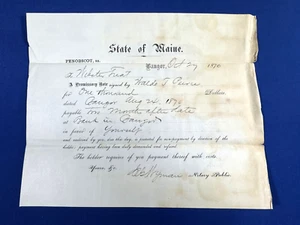 State of Maine.
PENOBSCOT, ss.
Bangor, Oct 27 1870
A Webster Treat
A Promissory Note signed by Waldo T. Peirce
for One thousand Dollars
dated Bangor Aug 24, 1870
payable two Months after date
at Bank in Bangor
in favor of Yourself
and endorsed by you, is this day protested for non-payment by direction of the
holder, payment having been duly demanded and refused.
The holder requires of you payment thereof with costs.
Yours &c.
Notary Public.